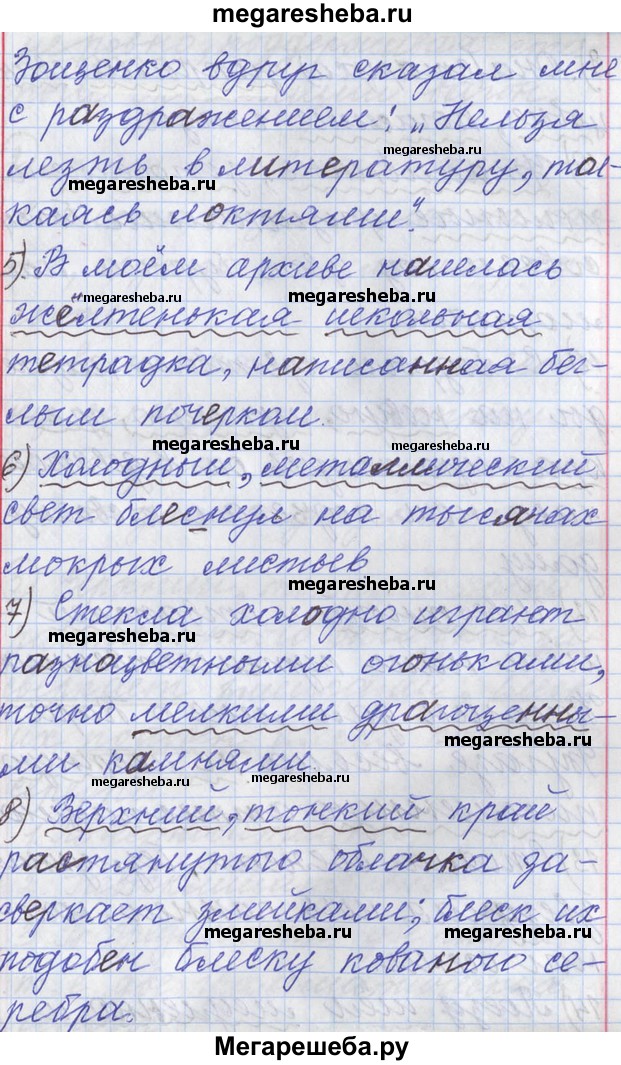 megaresheba.ru
Зощенко вдруг сказал мне
с раздражением: „Нельзя
megaresheba.ru
лезть в литературу, тол-
megaresheba.ru
каясь локтями“.
5). В моём архиве нашлась
megaresheba.ru
megaresheba.ru
жёлтенькая школьная
тетрадка, написанная бег-
лым почерком.
megaresheba.ru
megaresheba.ru
6) Холодный, металлический
свет блеснул на тысячах
мокрых листьев
megaresheba.ru
7) Стекла холодно играют
megaresheba.ru
разноцветными огоньками,
точно мелкими драгоценны-
megaresheba.ru
ми камнями.
megaresheba.ru
megaresheba.ru
8) Верхний, тонкий край
растянутого облачка за-
сверкает змейками; блеск их
megaresheba.ru
megaresheba.ru
подобен блеску кованого се-
ребра.
Мегарешеба.ру